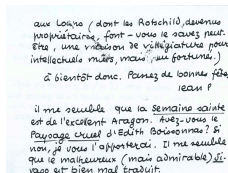 aux Loups (dont les Rotschild, devenus
propriétaires, font-vous le savez peut-
être, une maison de villégiature pour
intellectuels mûrs, mais, fortunés.)
à bientôt donc. Passez de bonnes fêtes
Jean P
il me semble que la semaine sainte
est de l'excellent Aragon. Avez-vous le
Paysage cruel d'Edith Boissonnas? Si
non, je vous l'apporterai. Il me semble
que le malheureux (mais admirable) Ji-
vago est bien mal traduit.